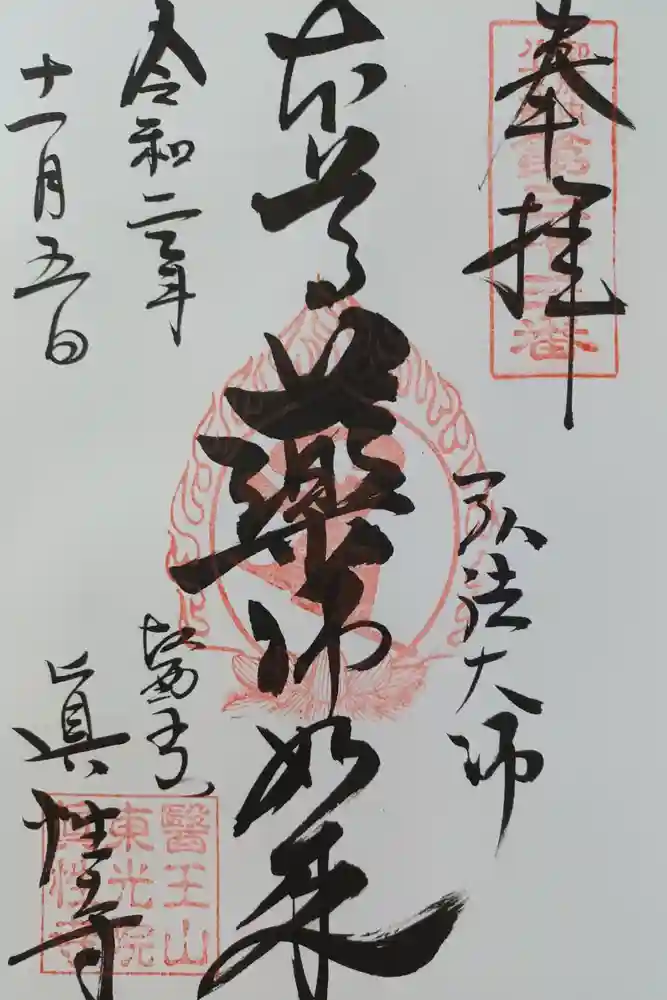 奉拝
第三十三番
弘法大師
本尊藥師如来
令和二年
十一月五日
眞性寺
醫王山
東光院
眞性寺